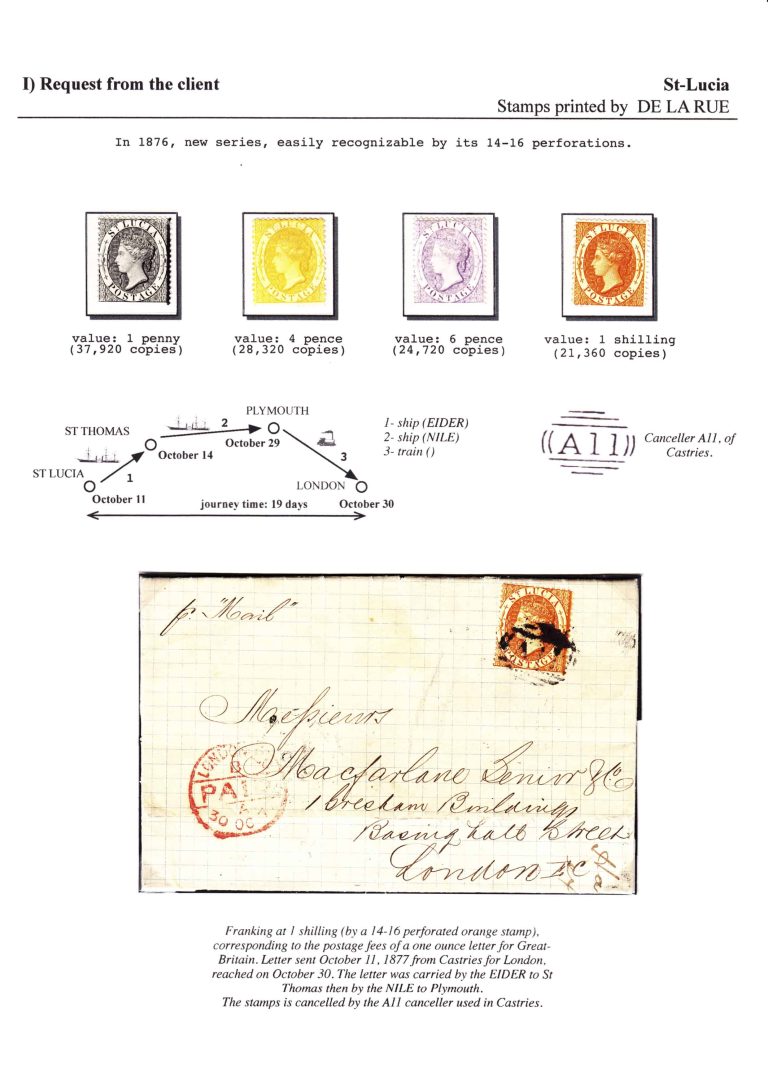 I) Request from the client
St-Lucia
Stamps printed by DE LA RUE
In 1876, new series, easily recognizable by its 14-16 perforations.
ST LUCIA
POSTAGE
ST LUCIA
POSTAGE
ST LUCIA
POSTAGE
ST LUCIA
POSTAGE
value: 1 penny
(37,920 copies)
value: 4 pence
(28,320 copies)
value: 6 pence
(24,720 copies)
value: 1 shilling
(21,360 copies)
PLYMOUTH
ST THOMAS
2
October 29
October 14
ST LUCIA
1
3
October 11
LONDON
October 30
journey time: 19 days
1- ship (EIDER)
2- ship (NILE)
3- train ()
((A11))
Canceller A11, of
Castries.
p. "Mail"
ST LUCIA
POSTAGE
Messieurs
Macfarlane Senior & Co
1 Gresham Buildings
Basinghall Street
London EC
LONDON
PAID
30 OC 7
Franking at 1 shilling (by a 14-16 perforated orange stamp),
corresponding to the postage fees of a one ounce letter for Great-
Britain. Letter sent October 11, 1877 from Castries for London,
reached on October 30. The letter was carried by the EIDER to St
Thomas then by the NILE to Plymouth.
The stamps is cancelled by the A11 canceller used in Castries.